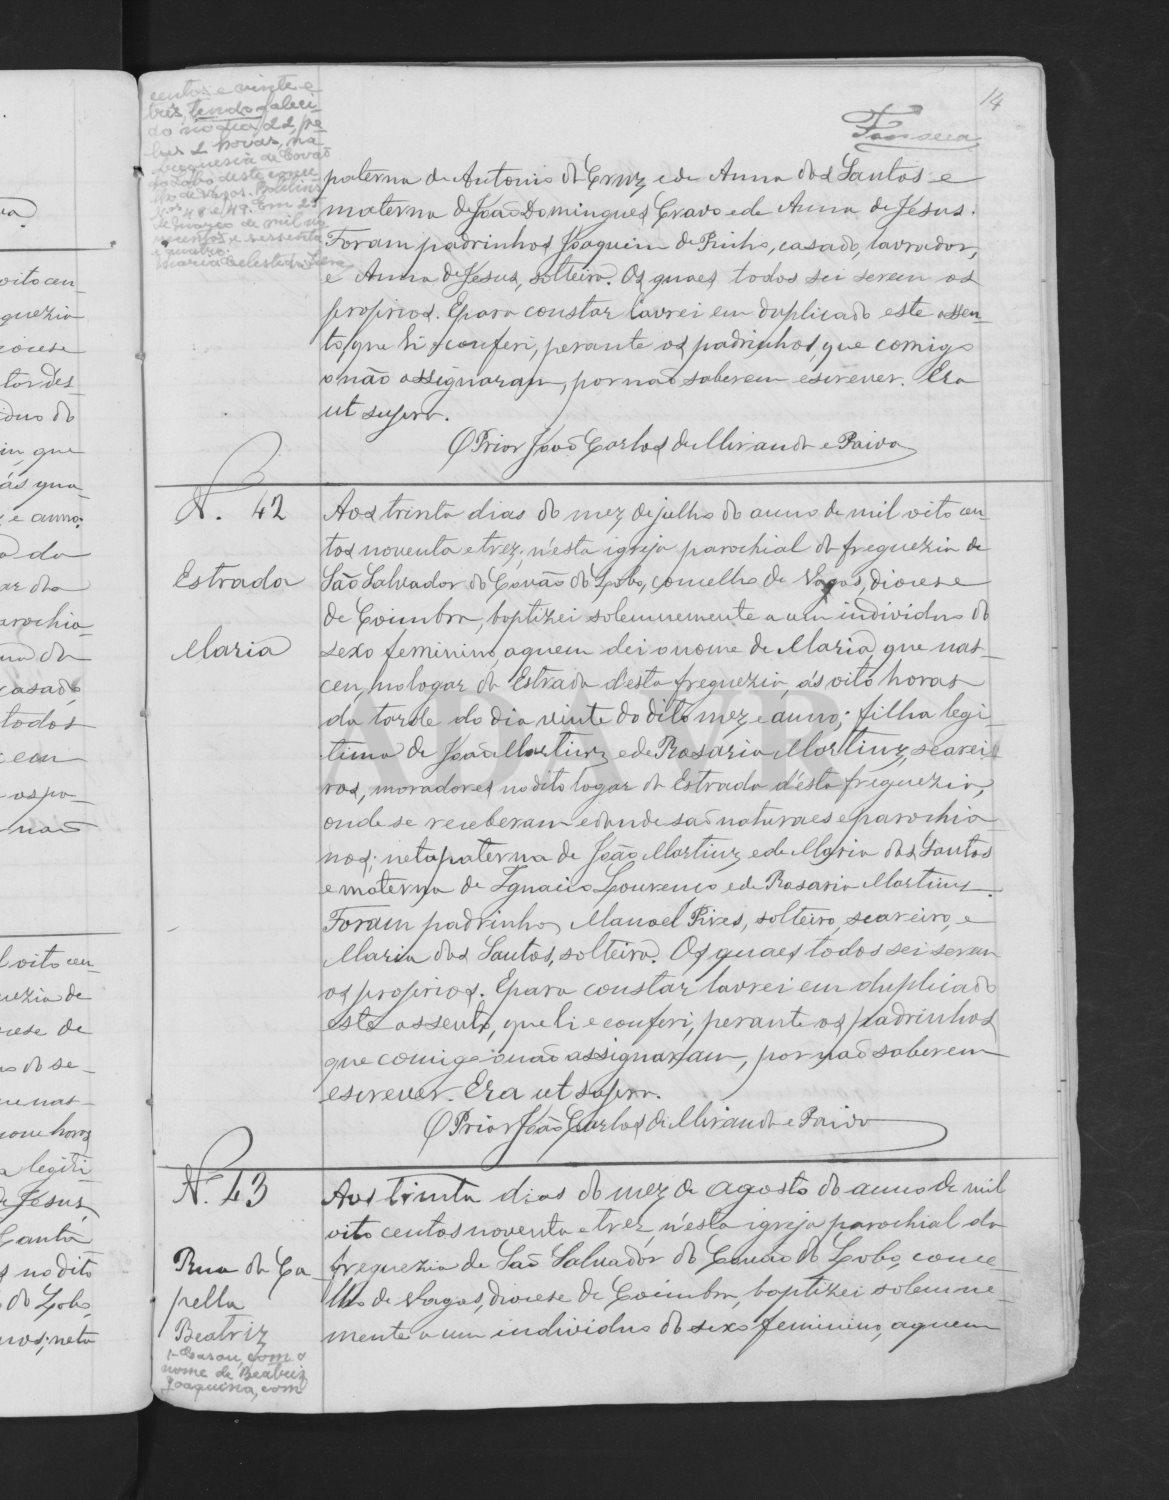 14
Fonseca
centos e vinte e
três, tendo faleci-
do no dia 22, pe-
las 2 horas, na
freguesia de Covão
do Lobo deste conce-
lho de Vagos. Boletins
nos 48 e 49. Em 25
de Março de mil no-
vecentos e sessenta
e quatro.
Maria Celeste
paterna de Antonio da Cruz e de Anna dos Santos e
materna de João Domingues Cravo e de Anna de Jesus.
Foram padrinhos Joaquim de Pinho, casado, lavrador,
e Anna de Jesus, solteira. Os quaes todos sei serem os
proprios. E para constar lavrei em duplicado este assen-
to, que li e conferi, perante os padrinhos, que comigo
o não assignaram, por não saberem escrever. Era
ut supra.
O Prior João Carlos de Miranda e Paiva
N. 42
Estrada
Maria
Aos trinta dias do mez de julho do anno de mil oito cen-
tos noventa e trez, n'esta igreja parochial da freguezia de
São Salvador do Covão do Lobo, concelho de Vagos, diocese
de Coimbra, baptizei solemnemente a um individuo do
sexo feminino, a quem dei o nome de Maria, que nas-
ceu no logar da Estrada d'esta freguezia, ás oito horas
da tarde do dia vinte do dito mez e anno; filha legi-
tima de João Martins, e de Rosaria Martins, searei-
ros, moradores no dito logar da Estrada d'esta freguezia,
onde se receberam e donde são naturaes e parochia-
nos; neta paterna de João Martins, e de Maria dos Santos
e materna de Ignacio Lourenço e de Rosaria Martins.
Foram padrinhos Manoel Pires, solteiro, seareiro, e
Maria dos Santos, solteira. Os quaes todos sei serem
os proprios. E para constar lavrei em duplicado
este assento, que li e conferi, perante os padrinhos
que comigo o não assignaram, por não saberem
escrever. Era ut supra.
O Prior João Carlos de Miranda e Paiva
N. 43
Rua da Ca
pella
Beatriz
1- Casou com o
nome de Beatriz
Joaquina, com
Aos trinta dias do mez de agosto do anno de mil
oito centos noventa e trez, n'esta igreja parochial da
freguezia de São Salvador do Covão do Lobo, conce-
lho de Vagos, diocese de Coimbra, baptizei solemne-
mente a um individuo do sexo feminino, a quem